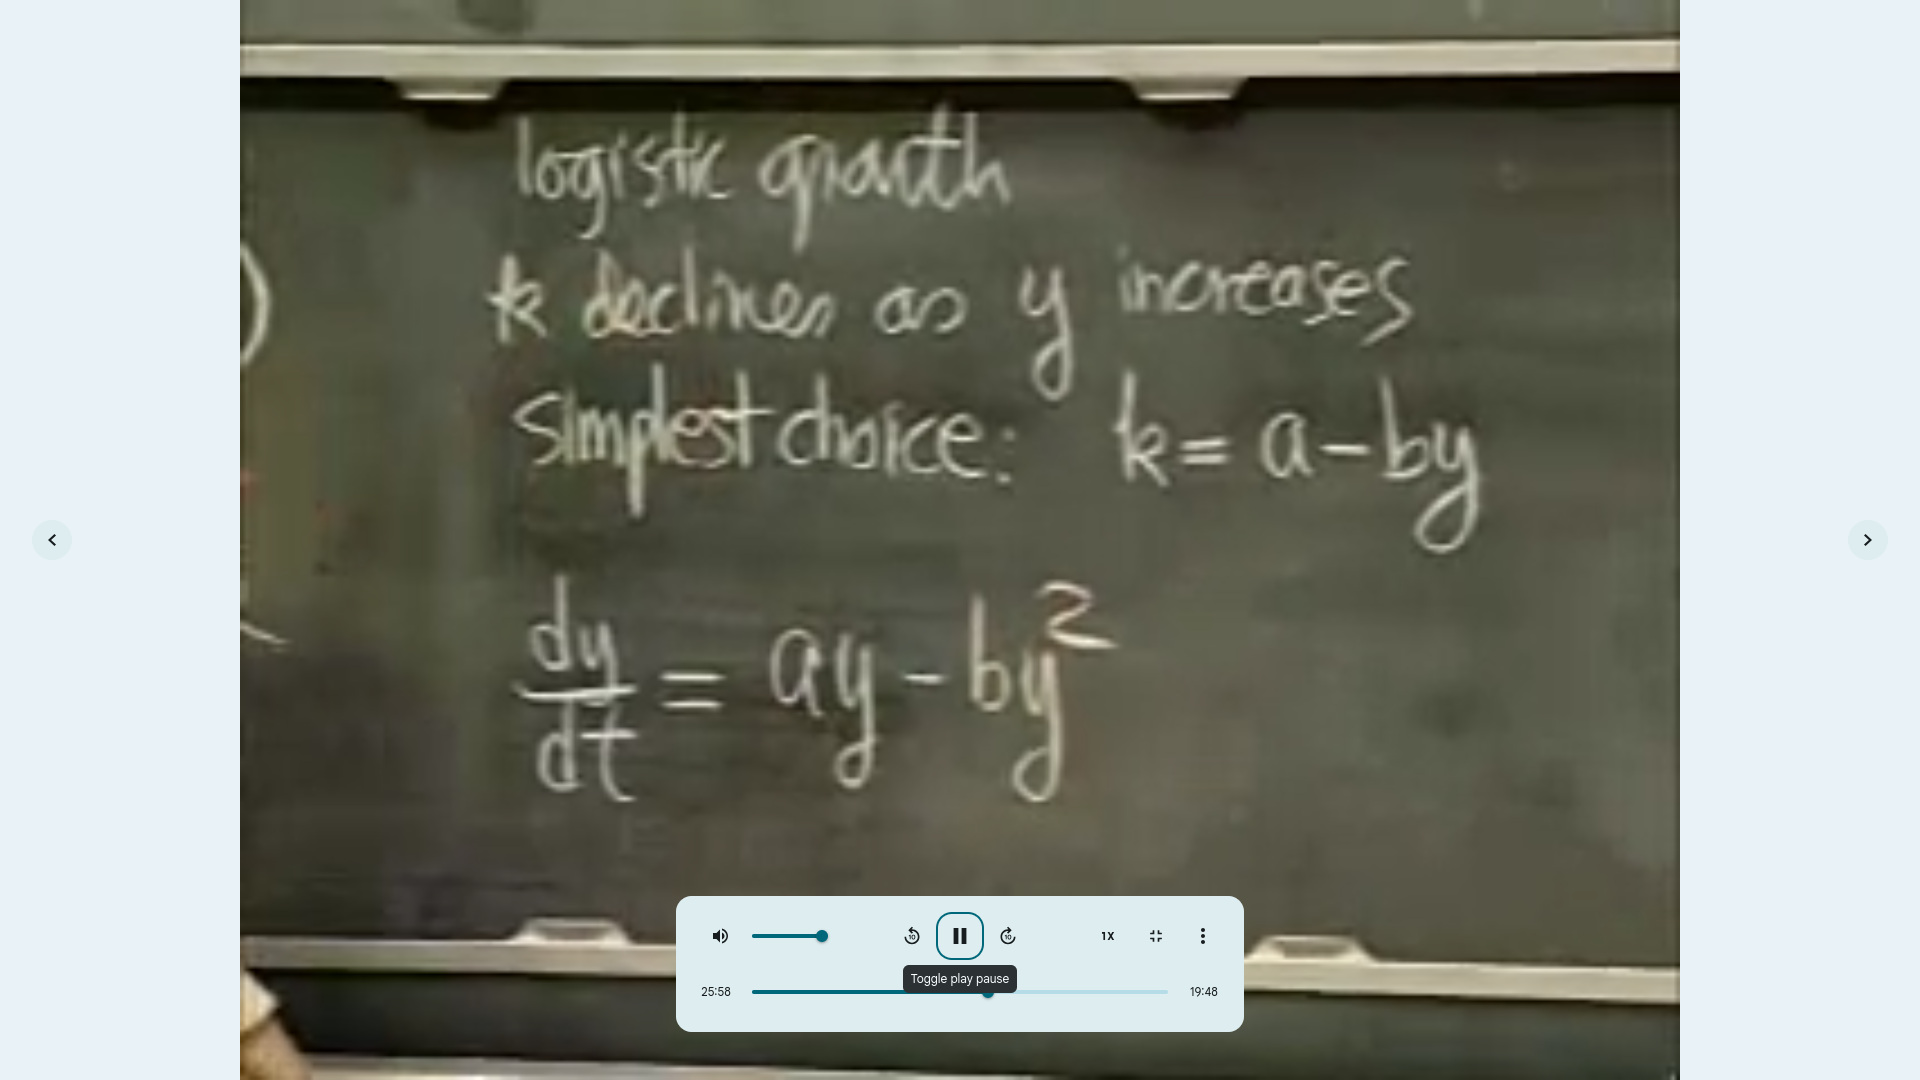 logistic growth
k declines as y increases
simplest choice: k = a - by
dy/dt = ay - by²
1X
Toggle play pause
25:58
19:48